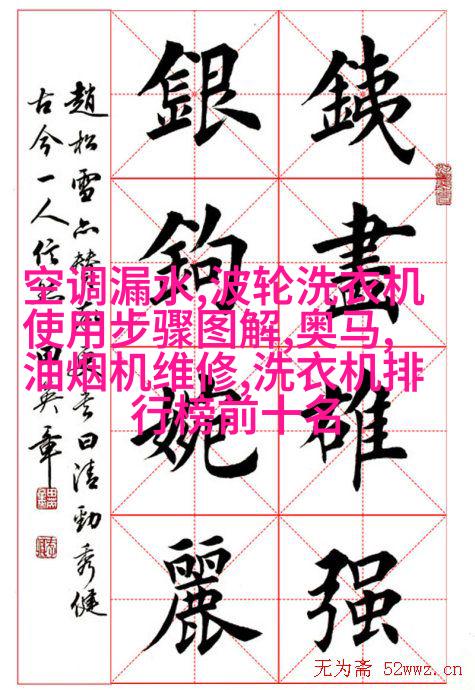 銕畫雄强
銀鉤婉麗
趙松雪 曰清勁秀健
古今一人信然 田英章
空调漏水,波轮洗衣机
使用步骤图解,奥马,
油烟机维修,洗衣机排
行榜前十名
无为斋 52wwz.cn